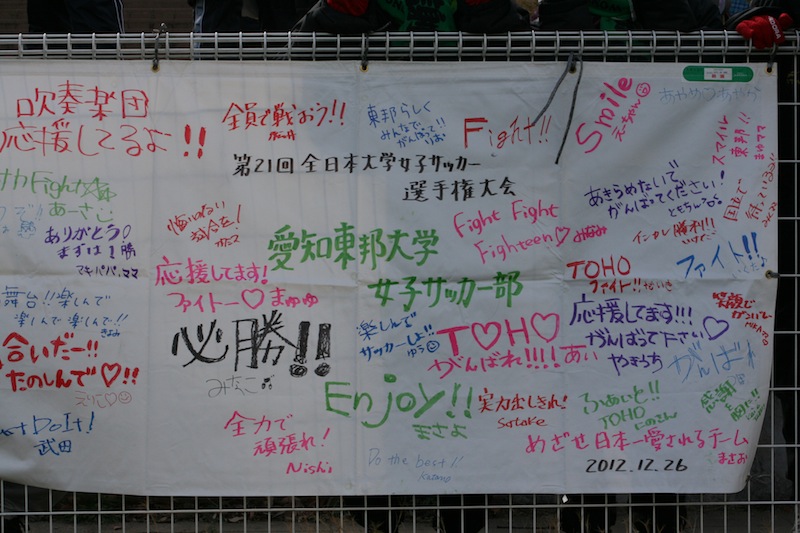 吹奏楽団
応援してるよ!!
全員で戦おう!!
東邦らしく
みんなで
がんばって!!
Fight!!
Smile
スマイル
東邦!!
まゆママ
第21回 全日本大学女子サッカー
選手権大会
Fight
あーさこ
ありがとう
まずは1勝
マキパパ、ママ
悔いのない
試合を!
あきらめないで
がんばってください!
Fight Fight
Fighteen♡
愛知東邦大学
女子サッカー部
インカレ勝利!!
ファイト!!
応援してます!
ファイトー♡まゆゆ
TOHO
ファイト!!
笑顔で
舞台!!楽しんで
楽しんで楽しんで!!
必勝!!
みなこ
楽しんで
サッカーしよ!!
ゆう
T♡H♡
がんばれ!!!!あい
応援してます!!!
がんばって下さい♡
やまうち
がんばれ
合いだー!!
たのしんで♡!!
えりこ♡
Enjoy!!
まさよ
実力出しきれ!
Satake
ふぁいと!!
TOHO
感謝
Do It!
武田
全力で
頑張れ!
Nishi
Do the best!!
めざせ日本一愛されるチーム
まさお
2012.12.26